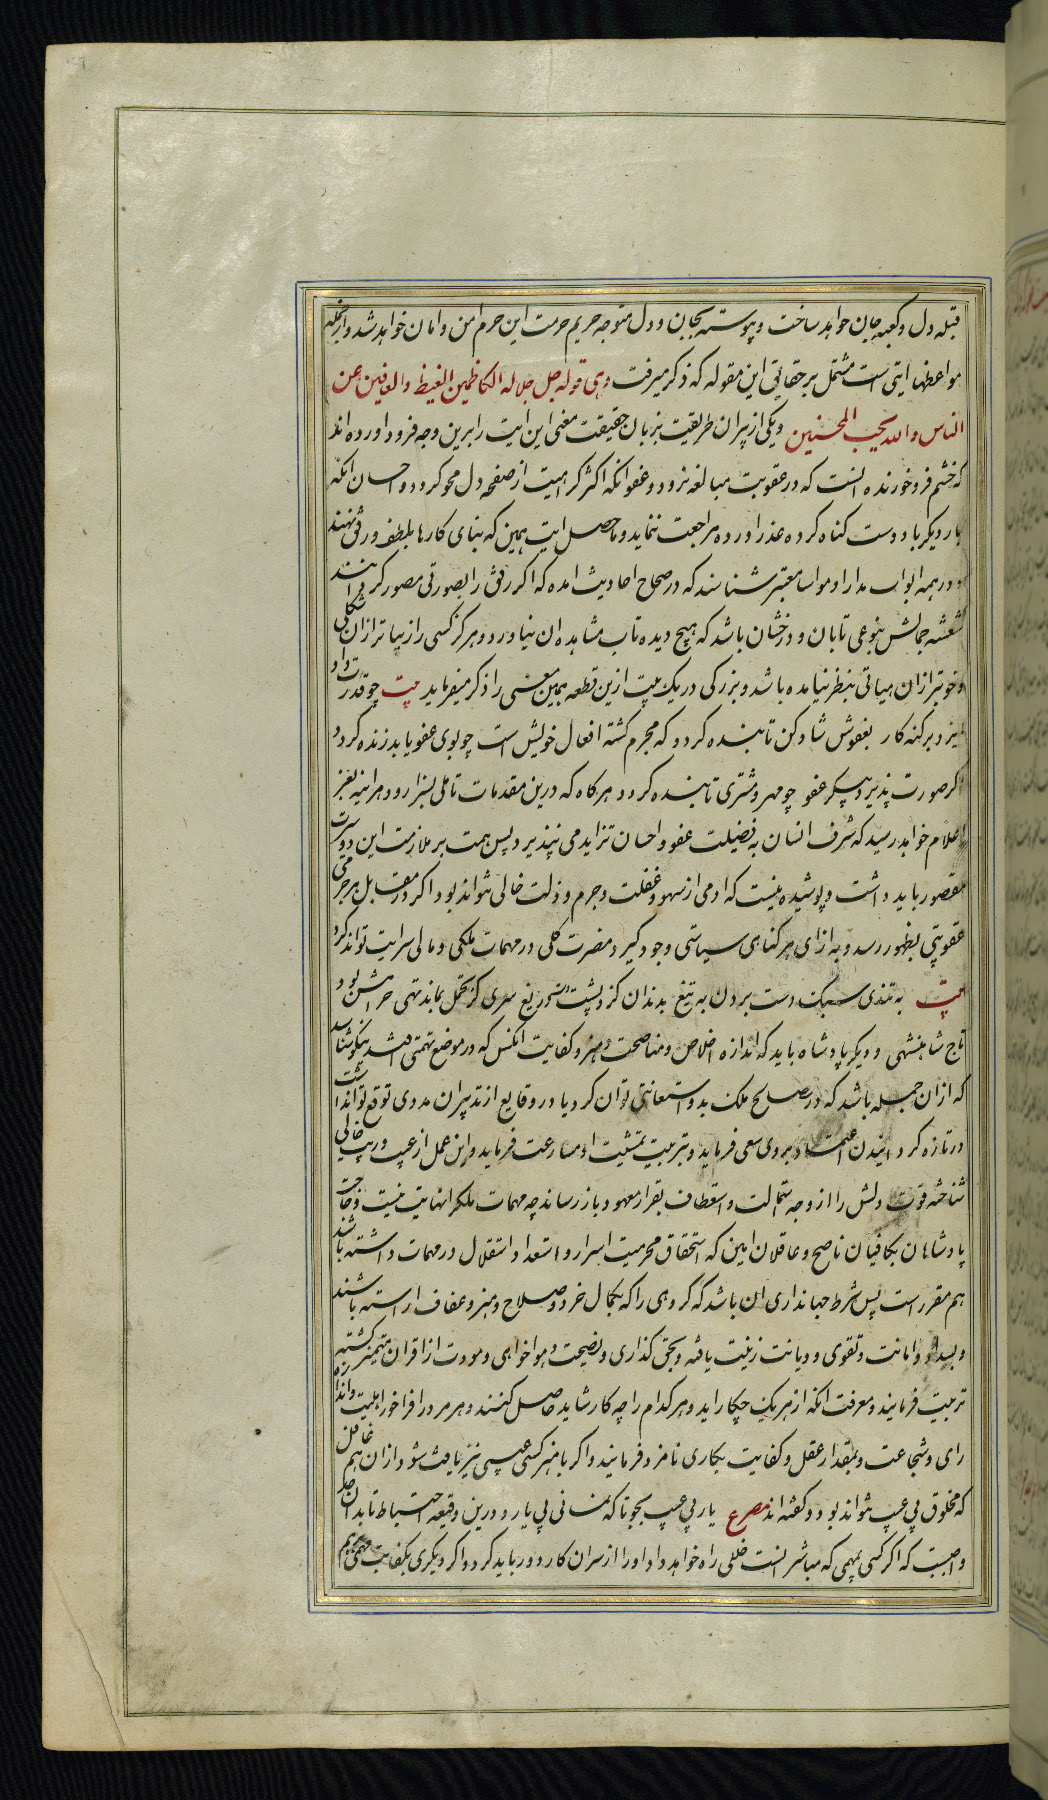 قبله دل و کعبه جان خواهد ساخت و پیوسته بجان و دل متوجه حریم حرمت این حرم امن و امان خواهد شد و از جمله
مواعظها ایتی است مشتمل بر حقایق این مقوله که ذکر میرفت وهی قوله جل جلاله الکاظمین الغیظ والعافین عن
الناس والله یحب المحسنین و یکی از پیران طریقت بزبان حقیقت معنی این ایت را برین وجه فرود اورده اند
که خشم فرو خورنده انست که در عقوبت مبالغه نرود و عفو انکه اکثر کراهیت از صفحه دل محو کردد و احسان انکه
بار دیکر با دوست کناه کرده عذر اورده مراجعت نماید و حاصل ایت همین که بنای کارها بلطف و رفق نهند
و در همه ابواب مدارا و مواسا معتبر شناسند که در صحاح احادیث امده که اکر رفق را بصورتی مصور کردانند
شعشعه جمالش بنوعی تابان و درخشان باشد که هیچ دیده تاب مشاهده ان نیاورد و هرکز کسی زیباتر از ان شکلی
و خوبتر از ان هیاتی بنظر نیامده باشد و بزرکی در یک بیت ازین قطعه همین معنی را ذکر میفرماید بیت چو قدرت داد
ایزد بر کنه کار بعفوش شاد کن تا بنده کردد که مجرم کشته افعال خویش است چو بوی عفو یابد زنده کردد
اکر صورت پذیرد پیکر عفو چو مهر و مشتری تابنده کردد هرکاه که درین مقدمات تاملی بسزا رود هراینه بعز
اعلام خواهد رسید که شرف انسان به فضیلت عفو و احسان تزاید می پذیرد پس همت بر ملازمت این دو سیرت
مقصور باید داشت و پوشیده نیست که ادمی از سهو و غفلت و جرم و ذلت خالی نتواند بود اکر در مقابل هر جرمی
عقوبتی بظهور رسد و به ازای هر کناهی سیاستی وجود کیرد مضرت کلی در مهمات ملکی و مالی سرایت تواند کرد
بیت به تندی سبک دست بردن به تیغ بدندان کزد پشت دست دریغ سری کز تحمل بماند تهی حرامش بود
تاج شاهنشهی و دیکر پادشاه باید که اندازه اخلاص و مناصحت و هنر و کفایت انکس که در موضع تهمتی افتد نیکو شناسد
که از ان جمله باشد که در مصالح ملک بدو استعانتی توان کرد یا در وقایع از تدبیر ان مددی توقع تواند داشت
در تازه کردانیدن اعتماد بروی سعی فرماید و تربیت تمشیت او مسارعت فرماید و این عمل از عیب و ریب خالی
شناخته قوت دلش را از وجه استمالت و استعطاف بقرار معهود باز رساند چه مهمات ملک را نهایت نیست و حاجت
پادشاهان بکافیان ناصح و عاقلان امین که استحقاق محرمیت اسرار و استعداد استقلال در مهمات داشته باشند
هم مقرر است پس شرط جهانداری ان باشد که کروهی را که بکمال خرد و صلاح و هنر و عفاف اراسته باشند
و بسداد و امانت و تقوی و دیانت زینت یافته و بحق کذاری و نصیحت و هواخواهی و مودت از اقران متمیز کشته
تربیت فرمایند و معرفت انکه از هر یک چکار اید و هر کدام را چه کار شاید حاصل کنند و هر مرد را فراخور اهلیت و اندازه
رای و شجاعت و بمقدار عقل و کفایت بکاری نامزد فرمایند و اکر با هنر کسی عیبی نیز یافت شود از ان هم غافل
که مخلوق بی عیب نتواند بود و کفته اند مصرع یار بی عیب مجو تا که نمانی بی یار و درین دقیقه احتیاط تا بدان حد
واجبست که اکر کسی بمهمی که مباشر انست خللی راه خواهد داد او را از سران کار دور باید کرد و اکر دیکری بکفایت مهمی هم